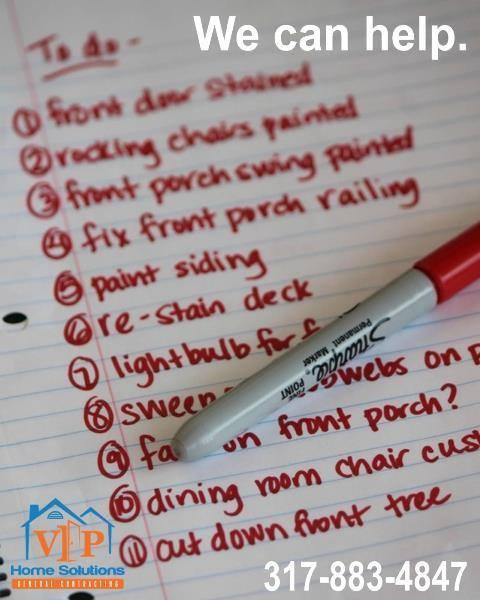 We can help.
To do -
① front door stained
② rocking chairs painted
③ front porch swing painted
④ fix front porch railing
⑤ paint siding
⑥ re-stain deck
⑦ lightbulb for f
⑧ sweep webs on p
⑨ fa on front porch?
⑩ dining room chair cus
⑪ cut down front tree
Sharpie
Permanent Marker
FINE POINT
VIP
Home Solutions
GENERAL CONTRACTING
317-883-4847